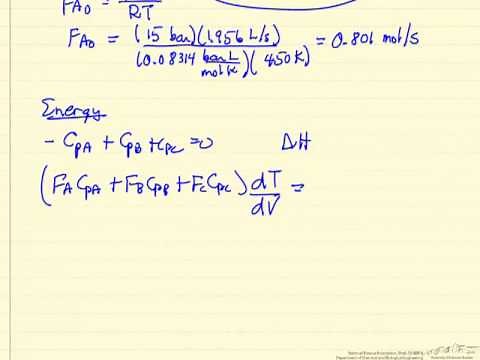 F_A0 = / RT
F_A0 = (15 bar)(1.956 L/s) / (0.08314 bar L / mol K)(450 K) = 0.801 mol/s
Energy
- C_PA + C_PB + C_PC = 0 ΔH
(F_A C_PA + F_B C_PB + F_C C_PC) dT/dV =